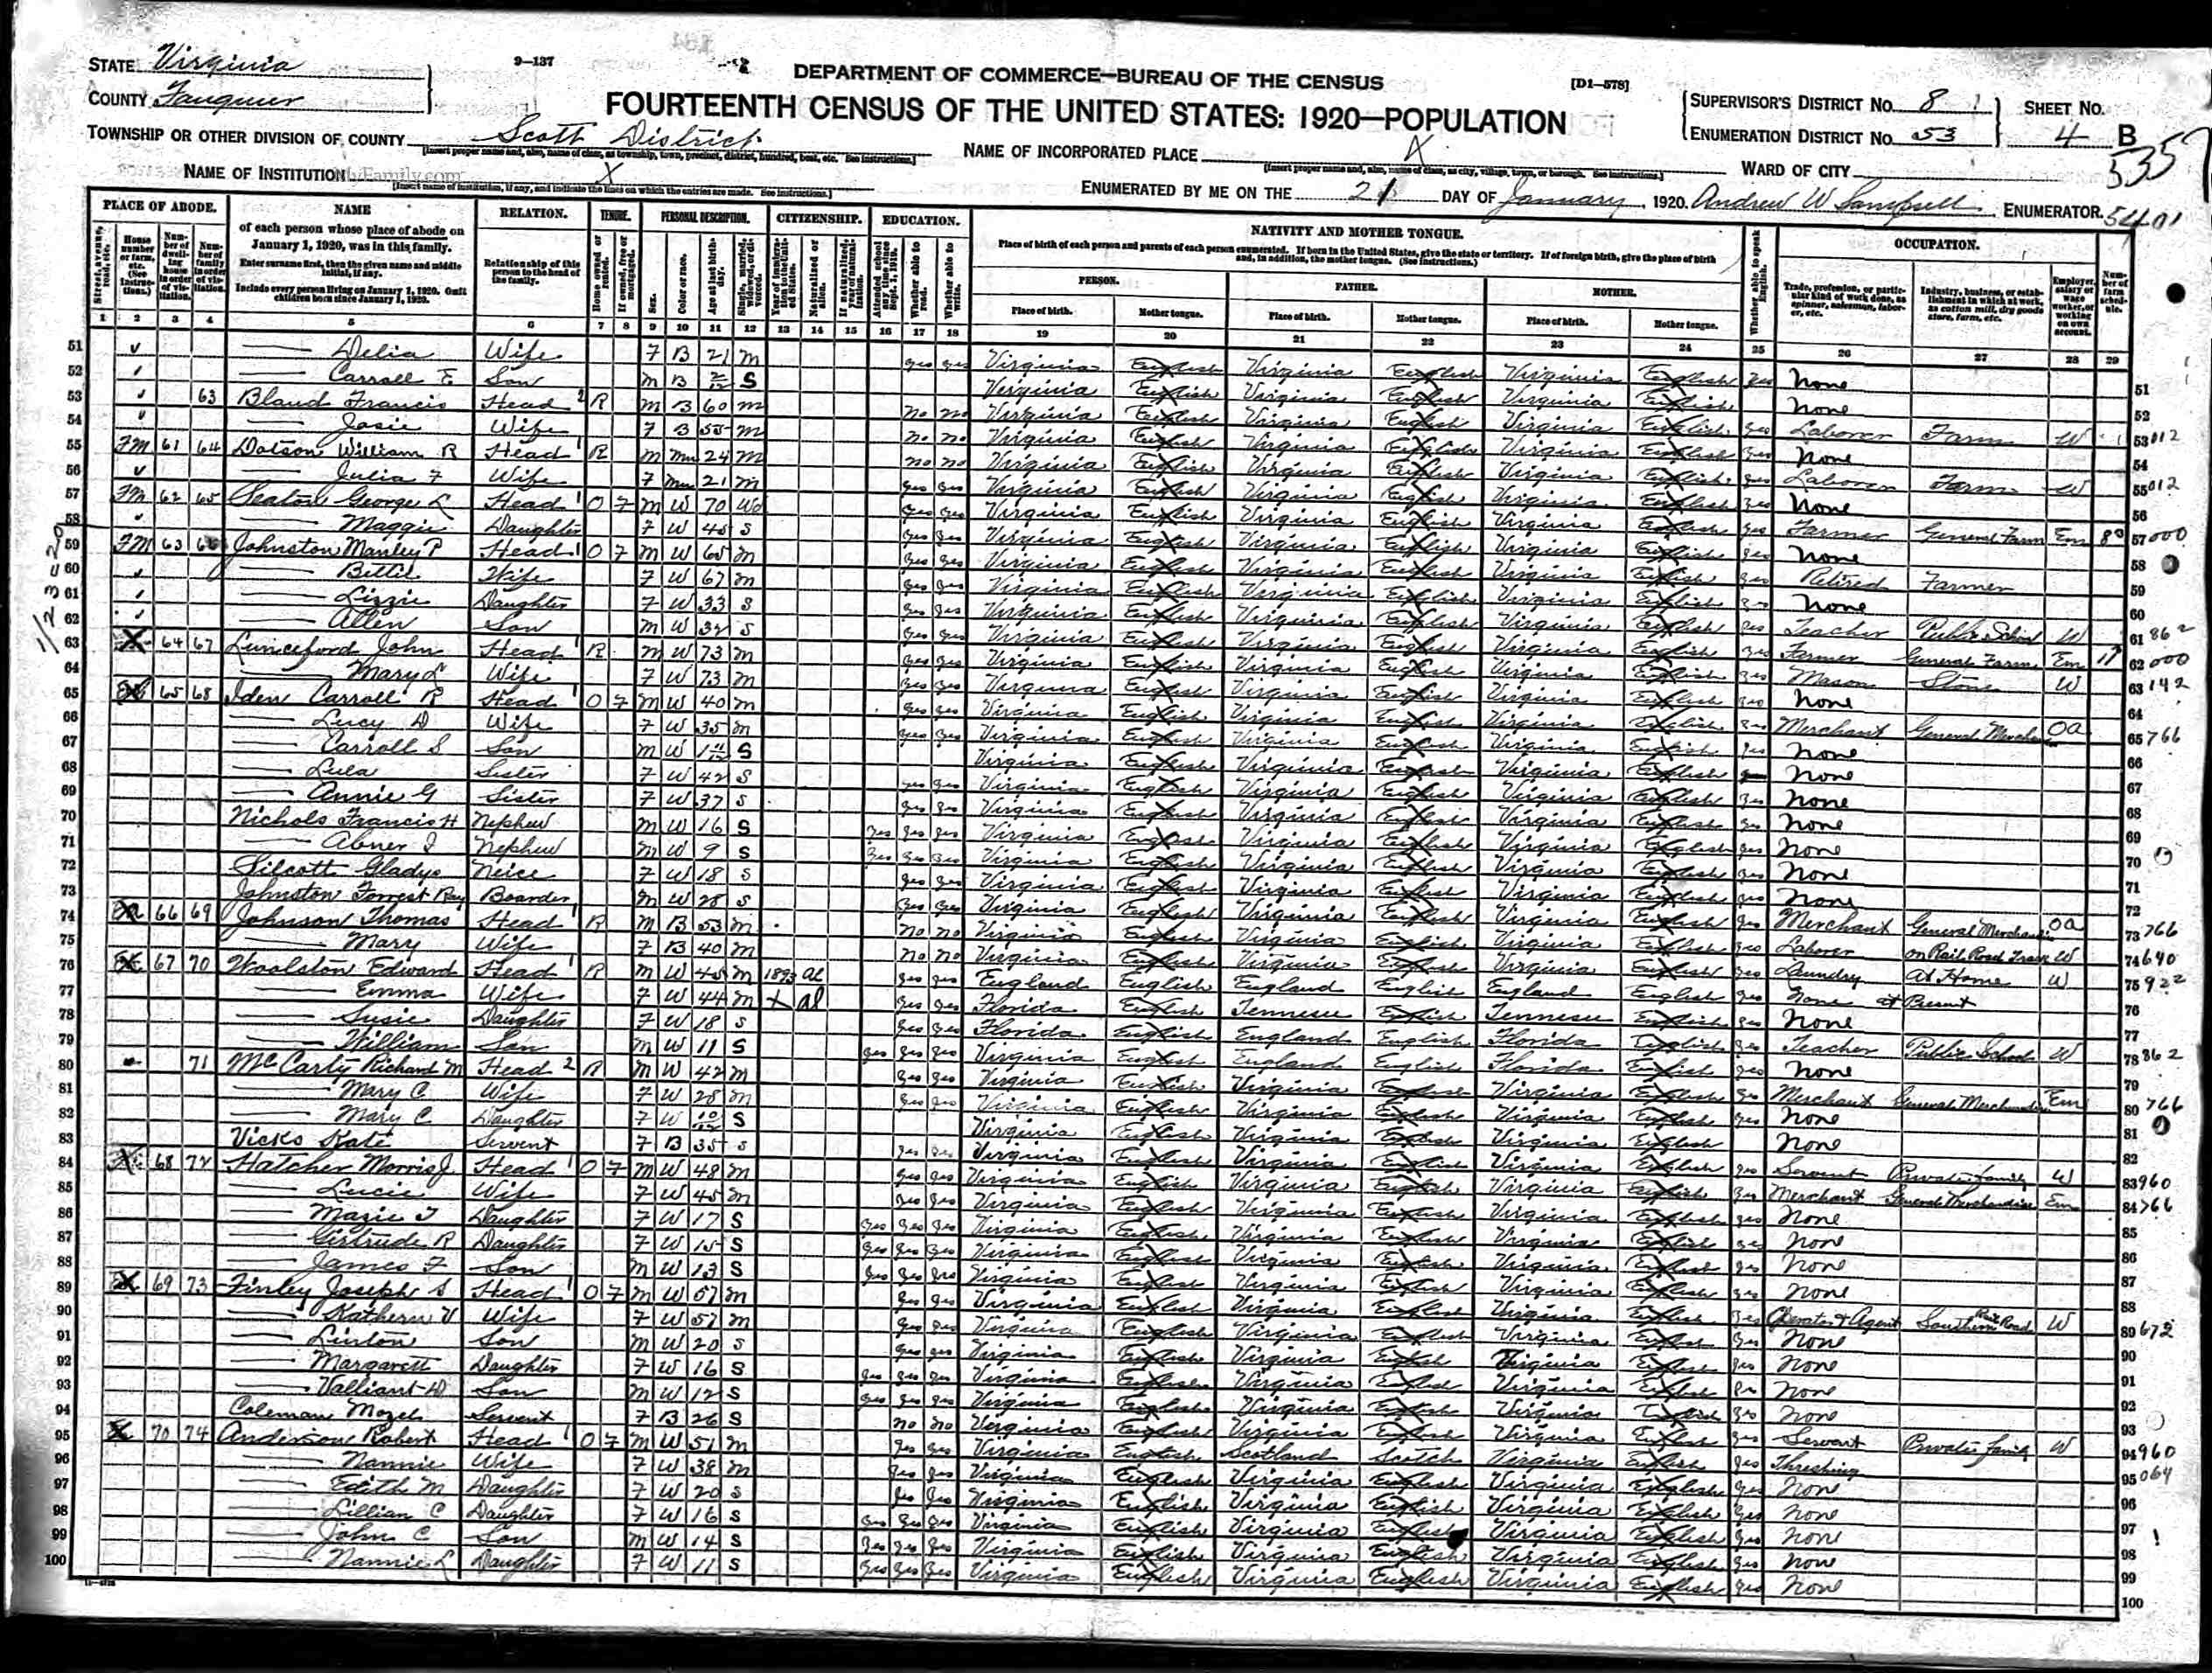 STATE Virginia
COUNTY Fauquier
9—137
DEPARTMENT OF COMMERCE—BUREAU OF THE CENSUS
[D1—578]
FOURTEENTH CENSUS OF THE UNITED STATES: 1920—POPULATION
SUPERVISOR'S DISTRICT NO. 8
ENUMERATION DISTRICT NO. 53
SHEET NO. 4 B
535
TOWNSHIP OR OTHER DIVISION OF COUNTY Scott District
NAME OF INCORPORATED PLACE X
WARD OF CITY
NAME OF INSTITUTION X
[Insert name of institution, if any, and indicate the lines on which the entries are made. See instructions.]
ENUMERATED BY ME ON THE 21 DAY OF January, 1920. Andrew W ENUMERATOR.
5401
PLACE OF ABODE. NAME RELATION. TENURE. PERSONAL DESCRIPTION. CITIZENSHIP. EDUCATION. NATIVITY AND MOTHER TONGUE. OCCUPATION.
of each person whose place of abode on January 1, 1920, was in this family.
Enter surname first, then the given name and middle initial, if any.
Include every person living on January 1, 1920. Omit children born since January 1, 1920.
Relationship of this person to the head of the family.
Place of birth of each person and parents of each person enumerated. If born in the United States, give the state or territory. If of foreign birth, give the place of birth and, in addition, the mother tongue. (See instructions.)
PERSON. FATHER. MOTHER.
Place of birth. Mother tongue. Place of birth. Mother tongue. Place of birth. Mother tongue.
1 2 3 4 5 6 7 8 9 10 11 12 13 14 15 16 17 18 19 20 21 22 23 24 25 26 27 28 29
51 Delia Wife F B 21 M yes yes Virginia English Virginia English Virginia English yes None
52 Carroll E Son M B 2/12 S Virginia English Virginia English Virginia English None
53 63 Bland Francis Head R M B 60 M no no Virginia English Virginia English Virginia English yes Laborer Farm W
54 Josie Wife F B 55 M no no Virginia English Virginia English Virginia English yes None
55 FM 61 64 Dotson William R Head R M Mu 24 M no no Virginia English Virginia English Virginia English yes Laborer Farm W
56 Julia F Wife F Mu 21 M yes yes Virginia English Virginia English Virginia English yes None
57 FM 62 65 Seaton George L Head O F M W 70 Wd yes yes Virginia English Virginia English Virginia English yes Farmer General Farm Em
58 Maggie Daughter F W 45 S yes yes Virginia English Virginia English Virginia English yes None
59 FM 63 66 Johnston Manley P Head O F M W 65 M yes yes Virginia English Virginia English Virginia English yes Retired Farmer
60 Bettie Wife F W 67 M yes yes Virginia English Virginia English Virginia English yes None
61 Lizzie Daughter F W 33 S yes yes Virginia English Virginia English Virginia English yes Teacher Public School W 862
62 Allen Son M W 32 S yes yes Virginia English Virginia English Virginia English yes Farmer General Farm Em 000
63 64 67 Lunceford John Head R M W 73 M yes yes Virginia English Virginia English Virginia English yes Mason Stone W 142
64 Mary L Wife F W 73 M yes yes Virginia English Virginia English Virginia English yes None
65 65 68 Iden Carroll R Head O F M W 40 M yes yes Virginia English Virginia English Virginia English yes Merchant OA 766
66 Lucy D Wife F W 35 M yes yes Virginia English Virginia English Virginia English yes None
67 Carroll S Son M W 1 11/12 S Virginia English Virginia English Virginia English None
68 Lula Sister F W 42 S yes yes Virginia English Virginia English Virginia English yes None
69 Annie G Sister F W 37 S yes yes Virginia English Virginia English Virginia English yes None
70 Nichols Francis H Nephew M W 16 S yes yes yes Virginia English Virginia English Virginia English yes None
71 Abner J Nephew M W 9 S yes yes yes Virginia English Virginia English Virginia English yes None
72 Silcott Gladys Neice F W 18 S yes yes Virginia English Virginia English Virginia English yes None
73 Johnston Forrest Ray Boarder M W 28 S yes yes Virginia English Virginia English Virginia English yes Merchant General Merchandise OA 766
74 66 69 Johnson Thomas Head R M B 53 M no no Virginia English Virginia English Virginia English yes Laborer on Rail Road Track W 640
75 Mary Wife F B 40 M no no Virginia English Virginia English Virginia English yes Laundry At Home W 922
76 67 70 Woolston Edward Head R M W 45 M 1893 Al yes yes England English England English England English yes None at Present
77 Emma Wife F W 44 M X Al yes yes Florida English Tennesee English Tennesee English yes None
78 Susie Daughter F W 18 S yes yes Florida English England English Florida English yes Teacher Public School W 862
79 William Son M W 11 S yes yes yes Virginia English England English Florida English yes None
80 71 McCarty Richard M Head R M W 42 M yes yes Virginia English Virginia English Virginia English yes Merchant General Merchandise Em 766
81 Mary C Wife F W 28 M yes yes Virginia English Virginia English Virginia English yes None
82 Mary C Daughter F W 10/12 S Virginia English Virginia English Virginia English None
83 Vicks Kate Servent F B 35 S yes yes Virginia English Virginia English Virginia English yes Servent Private Family W 960
84 68 72 Hatcher Morris J Head O F M W 48 M yes yes Virginia English Virginia English Virginia English yes Merchant General Merchandise Em 766
85 Lucie Wife F W 45 M yes yes Virginia English Virginia English Virginia English yes None
86 Marie T Daughter F W 17 S yes yes yes Virginia English Virginia English Virginia English yes None
87 Gertrude R Daughter F W 15 S yes yes yes Virginia English Virginia English Virginia English yes None
88 James F Son M W 13 S yes yes yes Virginia English Virginia English Virginia English yes None
89 69 73 Finley Joseph S Head O F M W 57 M yes yes Virginia English Virginia English Virginia English yes Operator & Agent Southern Rail Road W 672
90 Kathern V Wife F W 57 M yes yes Virginia English Virginia English Virginia English yes None
91 Linton Son M W 20 S yes yes Virginia English Virginia English Virginia English yes None
92 Margarett Daughter F W 16 S yes yes yes Virginia English Virginia English Virginia English yes None
93 Valliant D Son M W 12 S yes yes yes Virginia English Virginia English Virginia English yes None
94 Coleman Mozel Servent F B 26 S no no Virginia English Virginia English Virginia English yes Servant Private Family W 960
95 70 74 Anderson Robert Head O F M W 51 M yes yes Virginia English Scotland Scotch Virginia English yes Threshing 064
96 Nannie Wife F W 38 M yes yes Virginia English Virginia English Virginia English yes None
97 Edith M Daughter F W 20 S yes yes Virginia English Virginia English Virginia English yes None
98 Lillian C Daughter F W 16 S yes yes yes Virginia English Virginia English Virginia English yes None
99 John C Son M W 14 S yes yes yes Virginia English Virginia English Virginia English yes None
100 Nannie L Daughter F W 11 S yes yes yes Virginia English Virginia English Virginia English yes None